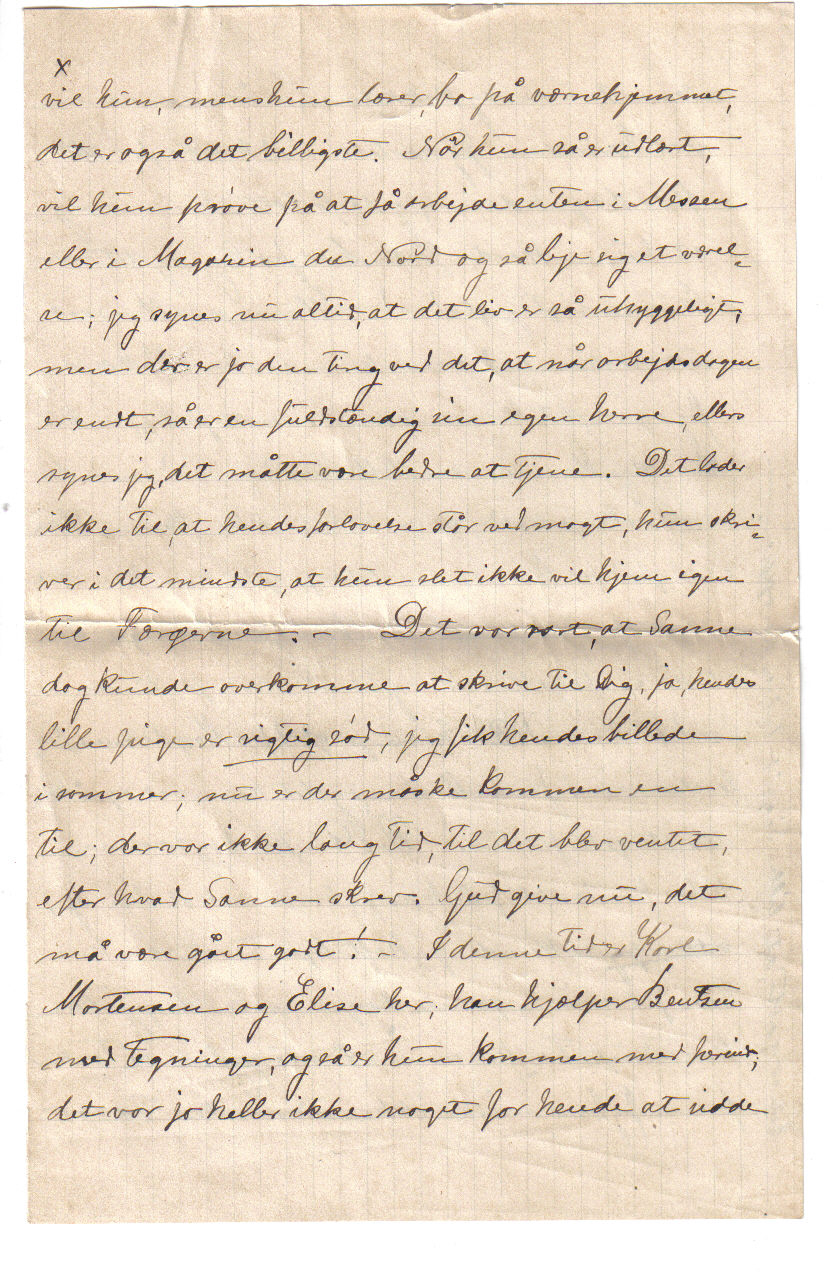 x
vil hun, mens hun lærer, bo på værnehjemmet,
det er også det billigste. Når hun så er udlært,
vil hun prøve på at få arbejde enten i Messen
eller i Magasin du Nord og så leje sig et værel=
se; jeg synes nu altid, at det liv er så uhyggeligt,
men der er jo den ting ved det, at når arbejdsdagen
er endt, så er en fuldstændig sin egen herre, ellers
synes jeg, det måtte være bedre at tjene. Det lader
ikke til, at hendes forlovelse står ved magt, hun skri=
ver i det mindste, at hun slet ikke vil hjem igen
til Færøerne. – Det var rart, at Sanne
dog kunde overkomme at skrive til Dig, ja, hendes
lille pige er rigtig sød, jeg fik hendes billede
i sommer; nu er der måske kommen en
til; der var ikke lang tid, til det blev ventet,
efter hvad Sanne skrev. Gud give nu, det
må være gået godt! – I denne tid er Karl
Mortensen og Elise her; han hjælper Bentsen
med tegninger, og så er hun kommen med herind;
det var jo heller ikke noget for hende at sidde